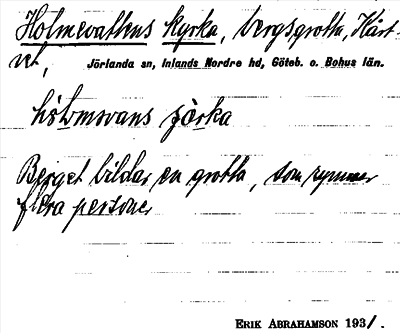 Holmevattens Kyrka, bergsgrotta, Hårt-
et,
Jörlanda sn, Inlands Nordre hd, Göteb. o. Bohus län.
hòlmsvans ɟòrka
Berget bildar en grotta, som rymmer
flera personer
ERIK ABRAHAMSON 1931.